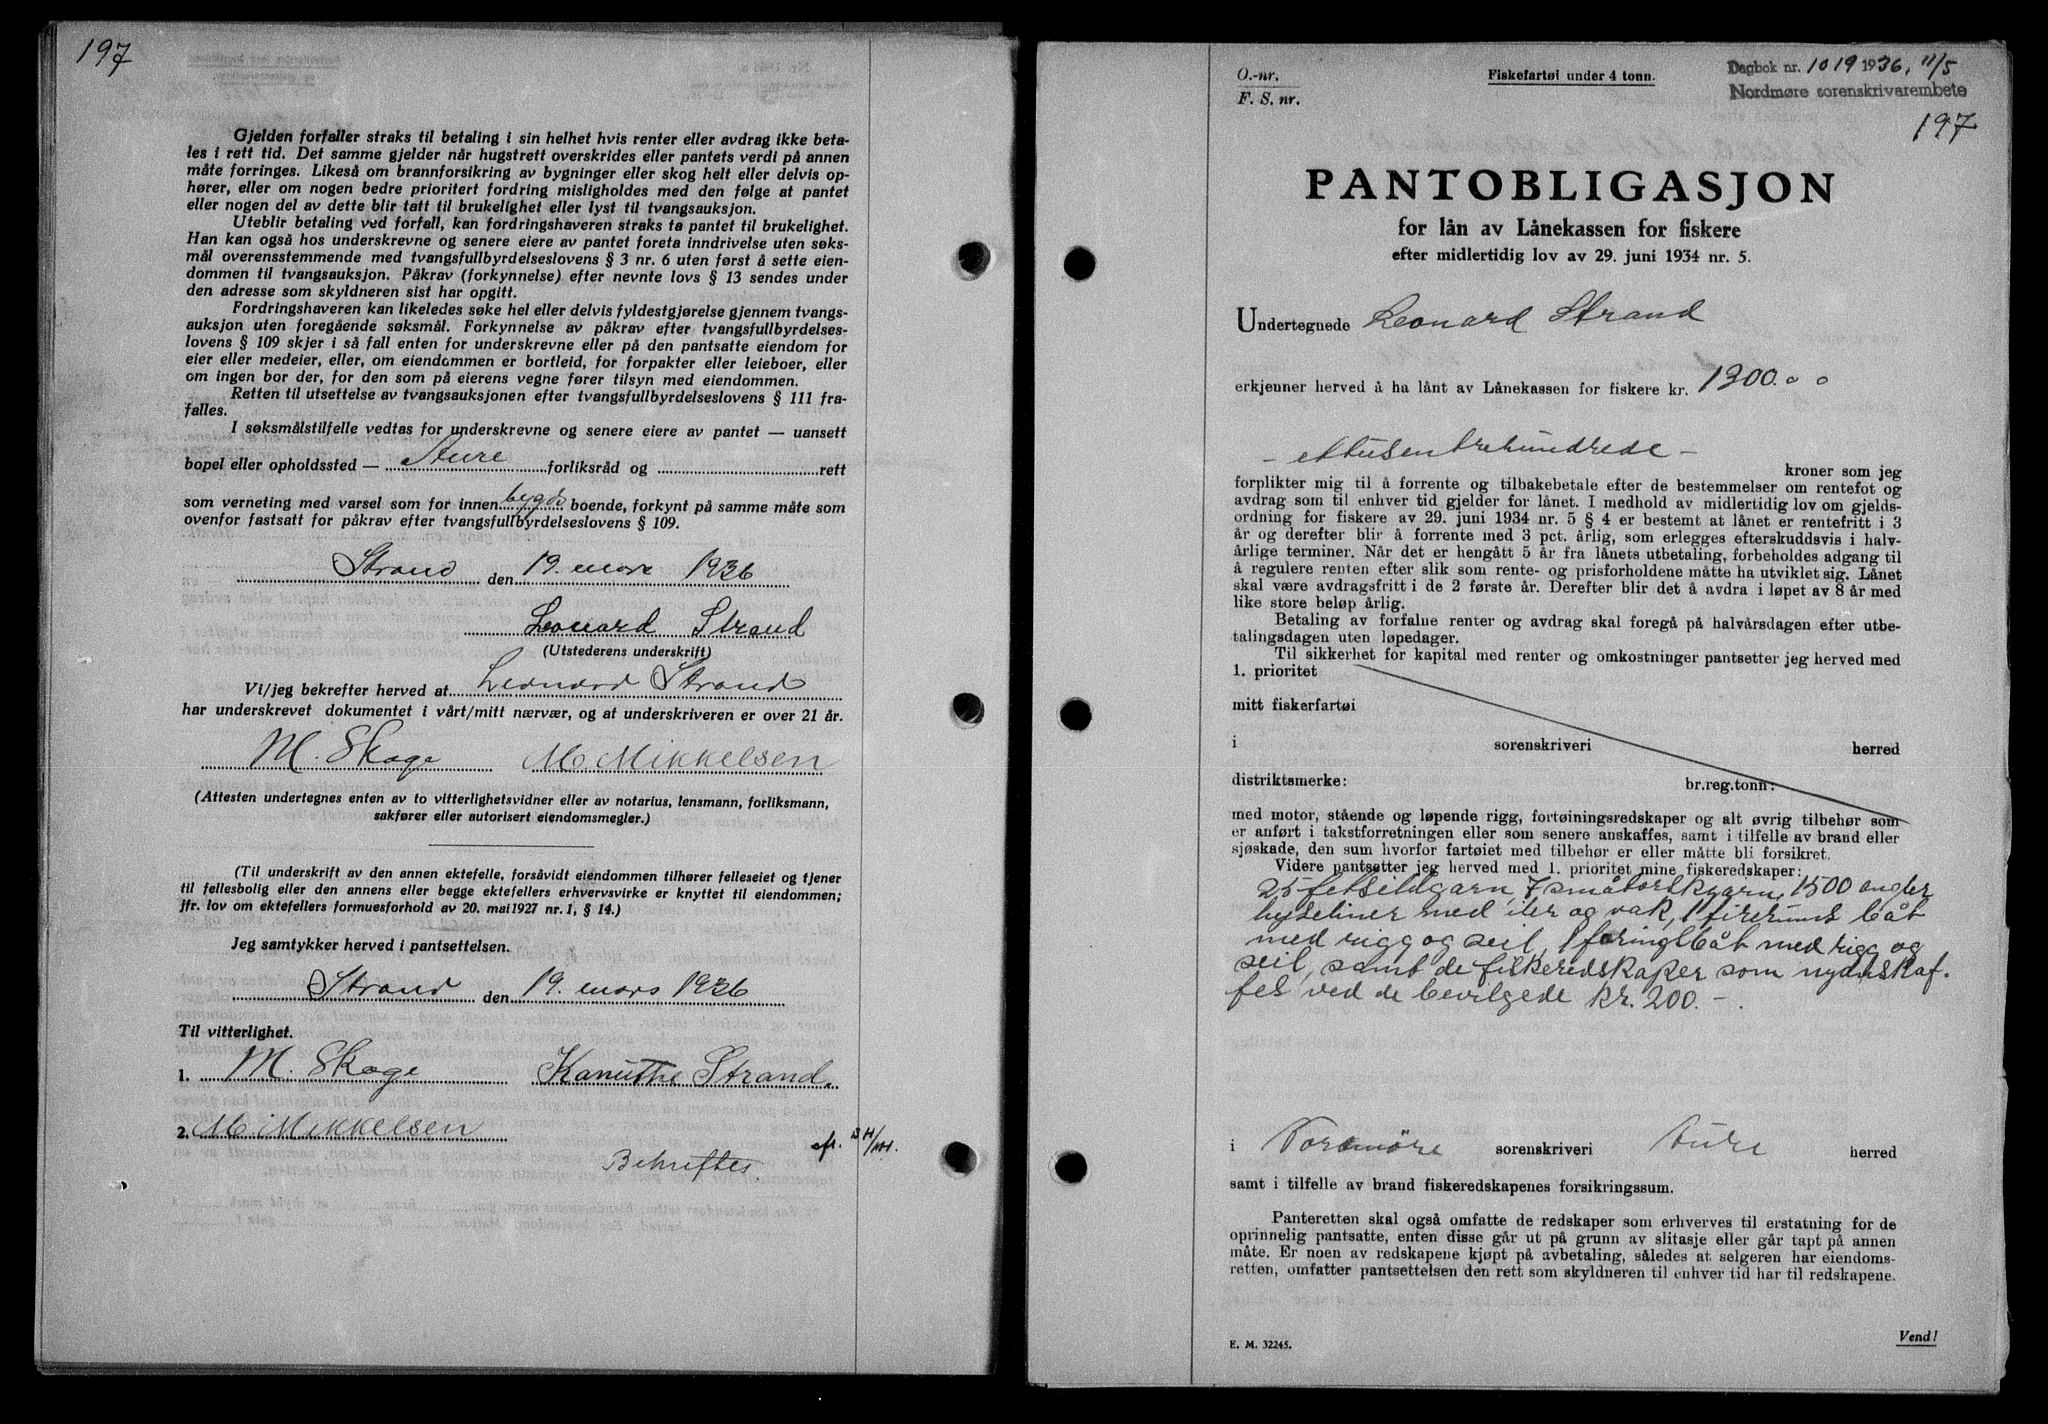 197
Gjelden forfaller straks til betaling i sin helhet hvis renter eller avdrag ikke beta-
les i rett tid. Det samme gjelder når hugstrett overskrides eller pantets verdi på annen
måte forringes. Likeså om brannforsikring av bygninger eller skog helt eller delvis op-
hører, eller om nogen bedre prioritert fordring misligholdes med den følge at pantet
eller nogen del av dette blir tatt til brukelighet eller lyst til tvangsauksjon.
Uteblir betaling ved forfall, kan fordringshaveren straks ta pantet til brukelighet.
Han kan også hos underskrevne og senere eiere av pantet foreta inndrivelse uten søks-
mål overensstemmende med tvangsfullbyrdelseslovens § 3 nr. 6 uten først å sette eien-
dommen til tvangsauksjon. Påkrav (forkynnelse) efter nevnte lovs § 13 sendes under
den adresse som skyldneren sist har opgitt.
Fordringshaveren kan likeledes søke hel eller delvis fyldestgjørelse gjennem tvangs-
auksjon uten foregående søksmål. Forkynnelse av påkrav efter tvangsfullbyrdelses-
lovens § 109 skjer i så fall enten for underskrevne eller på den pantsatte eiendom for
eier eller medeier, eller, om eiendommen er bortleid, for forpakter eller leieboer, eller
om ingen bor der, for den som på eierens vegne fører tilsyn med eiendommen.
Retten til utsettelse av tvangsauksjonen efter tvangsfullbyrdelseslovens § 111 fra-
falles.
I søksmålstilfelle vedtas for underskrevne og senere eiere av pantet — uansett
bopel eller opholdssted — Aure forliksråd og rett
som verneting med varsel som for innen bygds boende, forkynt på samme måte som
ovenfor fastsatt for påkrav efter tvangsfullbyrdelseslovens § 109.
Strand den 19. mars 1936
Leonard Strand
(Utstederens underskrift)
Vi/jeg bekrefter herved at Leonard Strand
har underskrevet dokumentet i vårt/mitt nærvær, og at underskriveren er over 21 år.
M. Skoge M Mikkelsen
(Attesten undertegnes enten av to vitterlighetsvidner eller av notarius, lensmann, forliksmann,
sakfører eller autorisert eiendomsmegler.)
(Til underskrift av den annen ektefelle, forsåvidt eiendommen tilhører fellesseiet og tjener
til fellesbolig eller den annens eller begge ektefellers erhvervsvirke er knyttet til eiendommen;
jfr. lov om ektefellers formuesforhold av 20. mai 1927 nr. 1, § 14.)
Jeg samtykker herved i pantsettelsen.
Strand den 19. mars 1936
Til vitterlighet.
1. M. Skoge Kanuthe Strand.
2. M. Mikkelsen
Bekreftes
O.-nr.
F. S. nr.
Fiskefartøi under 4 tonn.
Dagbok nr. 1019 1936, 11/5
Nordmøre sorenskrivarembete
197
PANTOBLIGASJON
for lån av Lånekassen for fiskere
efter midlertidig lov av 29. juni 1934 nr. 5.
Undertegnede Leonard Strand
erkjenner herved å ha lånt av Lånekassen for fiskere kr. 1300.00
- ettusentrehundrede -
kroner som jeg
forplikter mig til å forrente og tilbakebetale efter de bestemmelser om rentefot og
avdrag som til enhver tid gjelder for lånet. I medhold av midlertidig lov om gjelds-
ordning for fiskere av 29. juni 1934 nr. 5 § 4 er bestemt at lånet er rentefritt i 3
år og derefter blir å forrente med 3 pct. årlig, som erlegges efterskuddsvis i halv-
årlige terminer. Når det er hengått 5 år fra lånets utbetaling, forbeholdes adgang til
å regulere renten efter slik som rente- og prisforholdene måtte ha utviklet sig. Lånet
skal være avdragsfritt i de 2 første år. Derefter blir det å avdra i løpet av 8 år med
like store beløp årlig.
Betaling av forfalne renter og avdrag skal foregå på halvårsdagen efter utbe-
talingsdagen uten løpedager.
Til sikkerhet for kapital med renter og omkostninger pantsetter jeg herved med
1. prioritet
mitt fiskerfartøi
i sorenskriveri herred
distriktsmerke: br.reg.tonn:
med motor, stående og løpende rigg, fortøiningsredskaper og alt øvrig tilbehør som
er anført i takstforretningen eller som senere anskaffes, samt i tilfelle av brand eller
sjøskade, den sum hvorfor fartøiet med tilbehør er eller måtte bli forsikret.
Videre pantsetter jeg herved med 1. prioritet mine fiskeredskaper:
25 fetsildgarn, 7 småtorskgarn, 1500 angler
hyseliner med iler og vak, 1 firerums båt
med rigg og seil, 1 føringsbåt med rigg og
seil, samt de fiskeredskaper som nydnskaf-
fes ved de bevilgede kr. 200. -.
i Nordmøre sorenskriveri Aure herred
samt i tilfelle av brand fiskeredskapenes forsikringssum.
Panteretten skal også omfatte de redskaper som erhverves til erstatning for de
oprinnelig pantsatte, enten disse går ut på grunn av slitasje eller går tapt på annen
måte. Er noen av redskapene kjøpt på avbetaling, således at selgeren har eiendoms-
retten, omfatter pantsettelsen den rett som skyldneren til enhver tid har til redskapene.
E. M. 32245.
Vend!